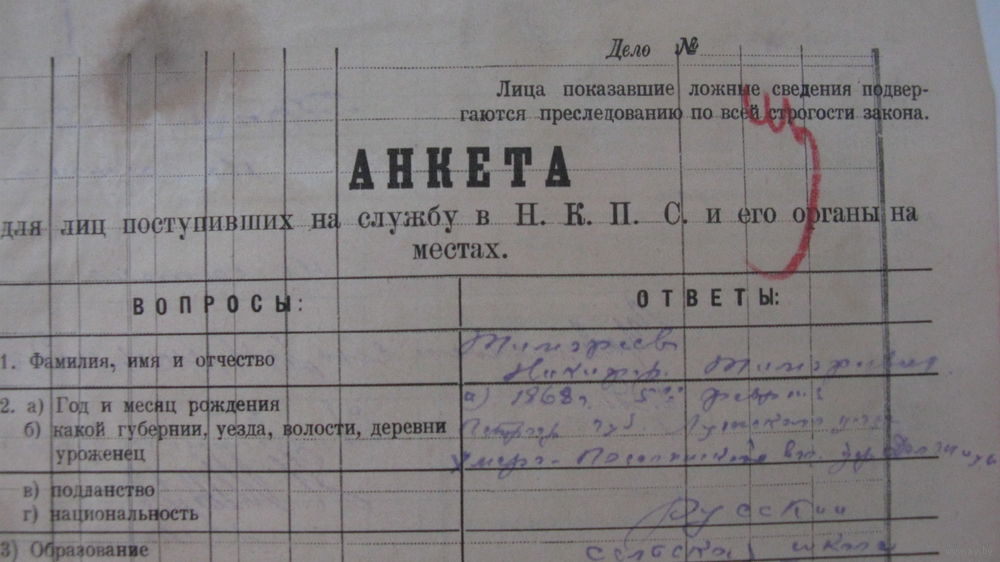 Дело №
Лица показавшие ложные сведения подвер-
гаются преследованию по всей строгости закона.
АНКЕТА
для лиц поступивших на службу в Н. К. П. С. и его органы на
местах.
ВОПРОСЫ: ОТВЕТЫ:
1. Фамилия, имя и отчество
2. а) Год и месяц рождения а) 1868 г. 5
б) какой губернии, уезда, волости, деревни
уроженец
в) подданство
г) национальность Русский
3) Образование сельская школа